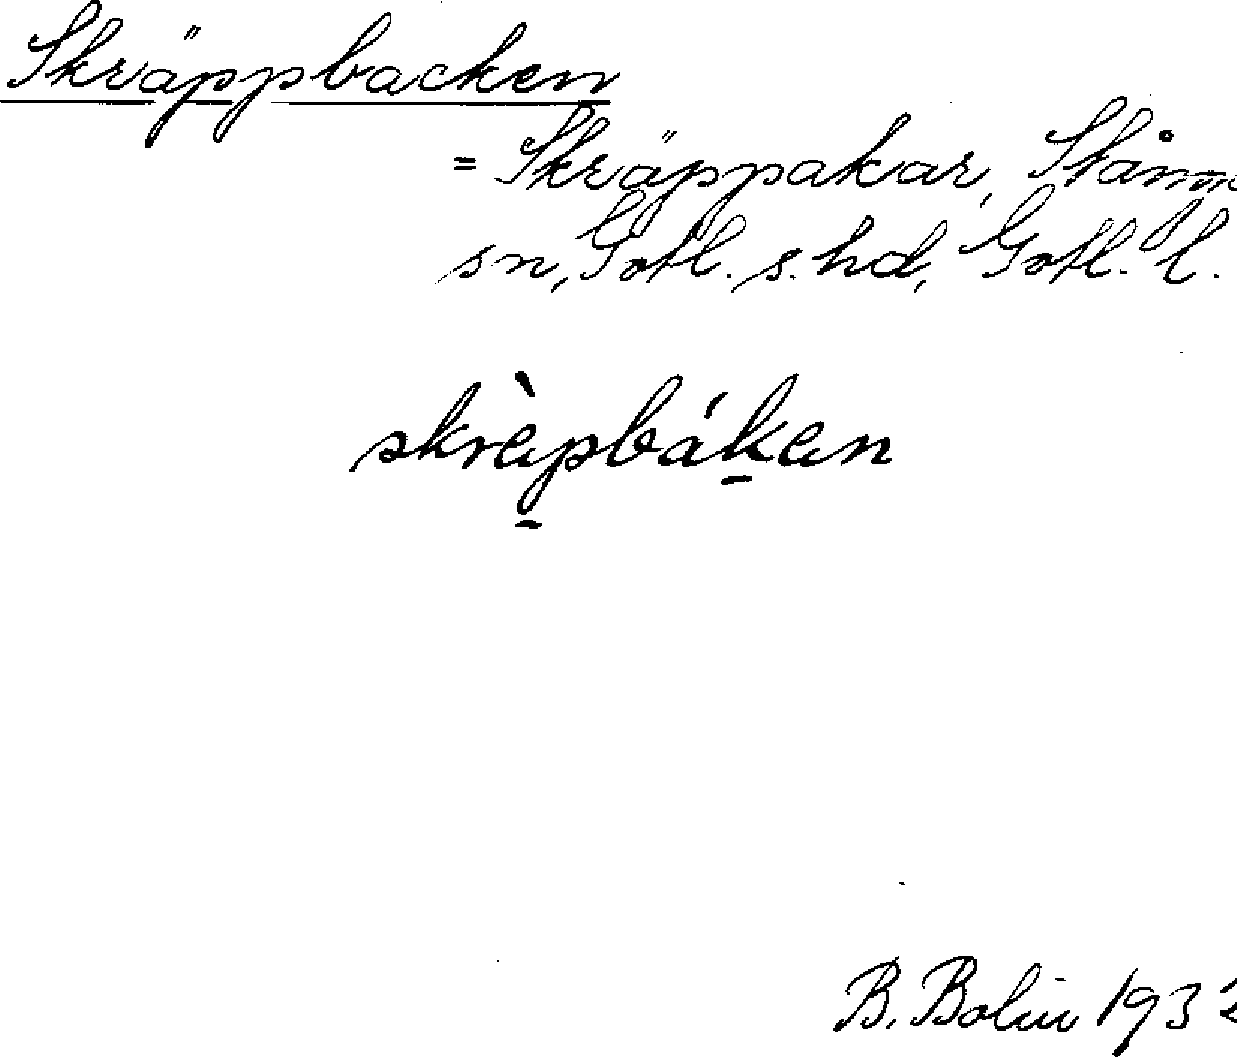 Skräppbacken
= Skräppakar, Stånn
sn, Gotl. s. hd, Gotl. l.
skrèpbáken
B. Bolin 1932